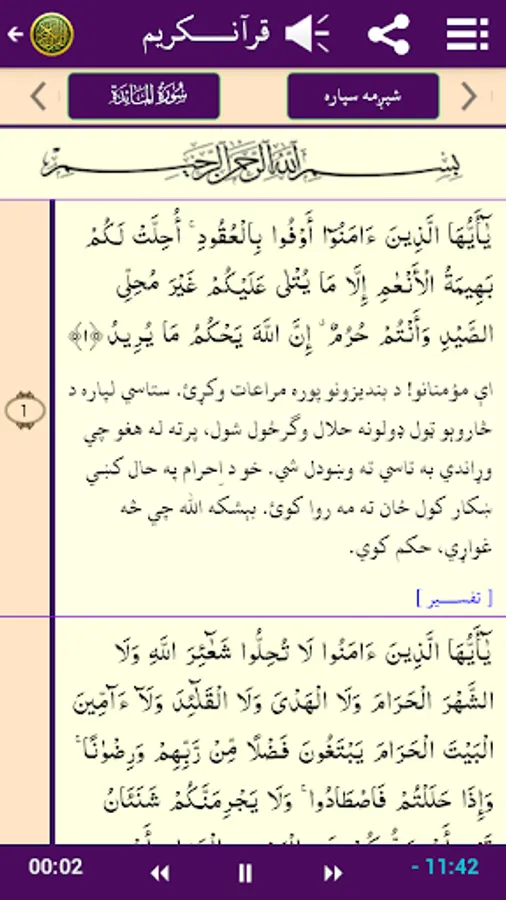 قرآنـــکریم
شپږمه سپاره
سُورَةُ المَائدَة
بِسْمِ اللَّهِ الرَّحْمَٰنِ الرَّحِيمِ
يَٰٓأَيُّهَا الَّذِينَ ءَامَنُوٓا أَوْفُوا بِالْعُقُودِ ۚ أُحِلَّتْ لَكُمْ
بَهِيمَةُ الْأَنْعَٰمِ إِلَّا مَا يُتْلَىٰ عَلَيْكُمْ غَيْرَ مُحِلِّى
الصَّيْدِ وَأَنْتُمْ حُرُمٌ ۗ إِنَّ اللَّهَ يَحْكُمُ مَا يُرِيدُ ﴿١﴾
1
اې مؤمنانو! د بنديزونو پوره مراعات وکړئ. ستاسي لپاره د
څارويو ټول ډولونه حلال وګرځول شول، پرته له هغو چي
وړاندي به تاسي ته وښودل شي. خو د اِحرام په حال کښي
ښکار کول ځان ته مه روا کوئ. بېشکه الله چي څه
غواړي، حکم کوي.
[ تفســـير ]
يَٰٓأَيُّهَا الَّذِينَ ءَامَنُوا لَا تُحِلُّوا شَعَٰٓئِرَ اللَّهِ وَلَا
الشَّهْرَ الْحَرَامَ وَلَا الْهَدْىَ وَلَا الْقَلَٰٓئِدَ وَلَآ ءَآمِّينَ
الْبَيْتَ الْحَرَامَ يَبْتَغُونَ فَضْلًا مِّنْ رَّبِّهِمْ وَرِضْوَٰنًا ۚ
وَإِذَا حَلَلْتُمْ فَاصْطَادُوا ۚ وَلَا يَجْرِمَنَّكُمْ شَنَـَٔانُ
00:02
- 11:42